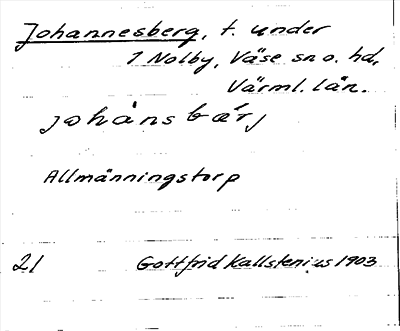 Johannesberg, t. under
1 Nolby, Väse sn o. hd,
Värml. län.
johánsbærj
Allmänningstorp
21 Gottfrid Kallstenius 1903